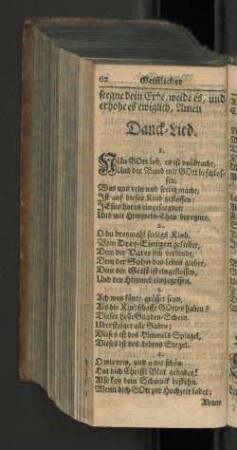 62 Geistlicher
seegne dein Erbe, weide es, und
erhöhe es ewiglich, Amen
Danck-Lied.
1.
NUn GOtt lob, es ist vollbracht,
Und der Bund mit GOtt beschlos-
sen,
Was uns rein und seelig macht,
Ist auf dieses Kind geflossen:
JEsus hat es eingesegnet,
Und mit Himmels-Thau beregnet.
2.
O du dreymahl seeligs Kind,
Vom Drey-Einigen geliebet,
Dem der Vater sich verbindt,
Dem der Sohn das Leben giebet,
Dem der Geist ist eingeflossen,
Und der Himmel eingegossen.
3.
Ach was könte grösser seyn,
Als die Kindschafft GOttes haben?
Dieser Gnaden-Schein
Ubersteiget alle Gaben:
Dieses ist des Himmels Spiegel,
Dieses ist des Lebens Siegel.
4.
O wie rein, und o wie schön
Hat dich Christi Blut gebadet!
Also kan dein Schmuck bestehn,
Wenn dich GOtt zur Hochzeit ladet;